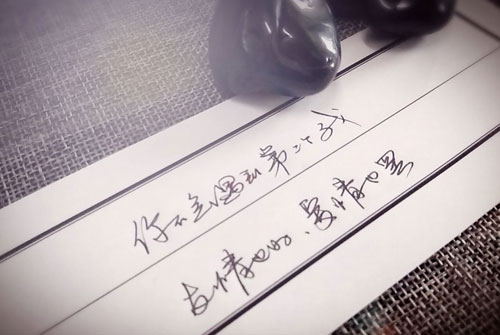 你不会遇到第二个我
友情也好、爱情也罢